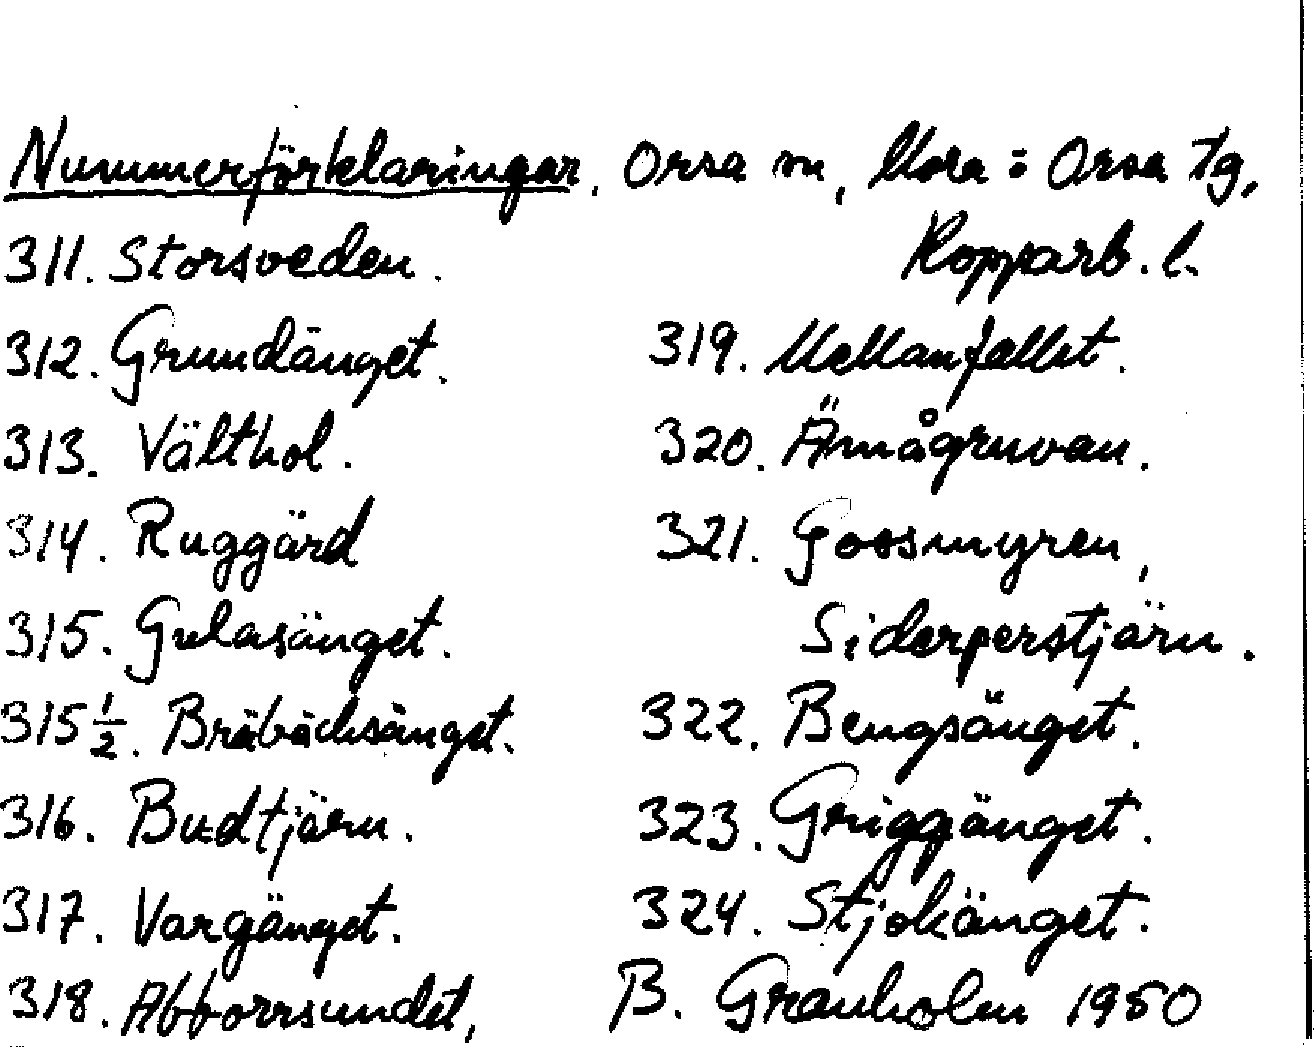 Nummerförklaringar. Orsa sn, Mora o Orsa Tg,
Kopparb. l.
311. Storsveden.
312. Grundänget.
313. Välthol.
314. Ruggärd
315. Gulasänget.
315 1/2. Bräbäcksänget.
316. Budtjärn.
317. Vargänget.
318. Abborrsundet,
319. Mellanfallet.
320. Ämågruvan.
321. Goosmyren,
Siderperstjärn.
322. Bengsänget.
323. Griggänget.
324. Stjokänget.
B. Granholm 1950